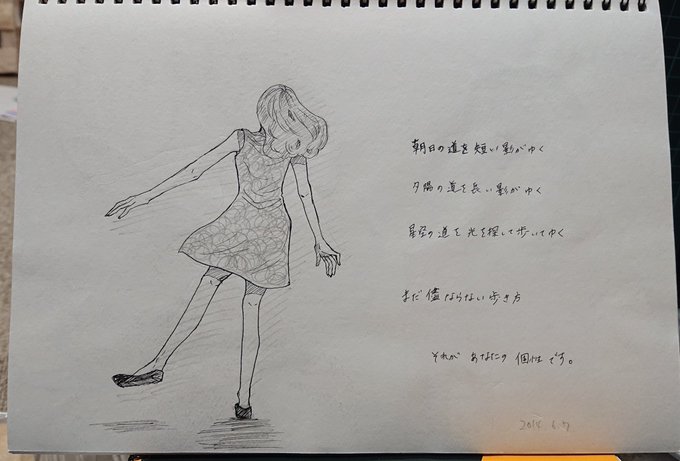 朝日の道を短い影がゆく
夕陽の道を長い影がゆく
星空の道を光を探して歩いてゆく
まだ儘ならない歩き方
それが あなたの 個性です。
2014.6.7